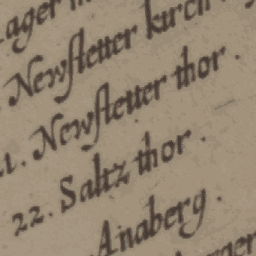 Newstetter kirch
21. Newstetter thor.
22. Saltz thor.
Anaberg.